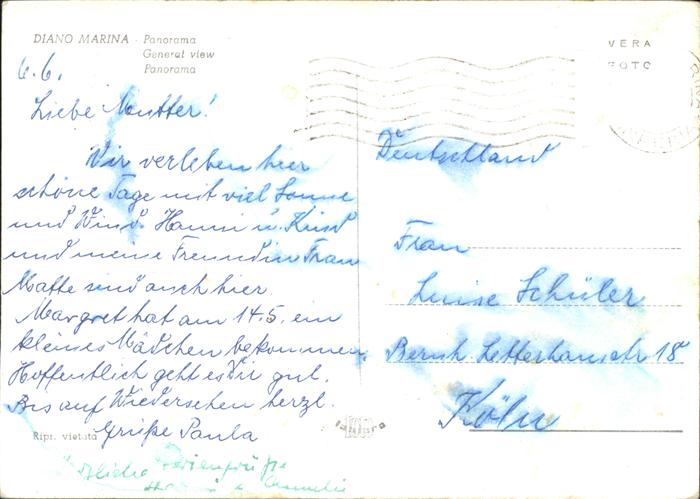 DIANO MARINA - Panorama
General view
Panorama
VERA
FOTO
6.6.
Liebe Mutter!
Wir verleben hier
schöne Tage mit viel Sonne
und Wind. Hanni u. Kind
und meine Freundin Frau
Matte sind auch hier.
Margret hat am 14.5. ein
kleines Mädchen bekommen.
Hoffentlich geht es Dir gut.
Bis auf Wiedersehen herzl.
Grüße Paula
Ripr. vietata
Deutschland
Frau
Luise Schüler
Bernh. Letterhausstr 18
Köln